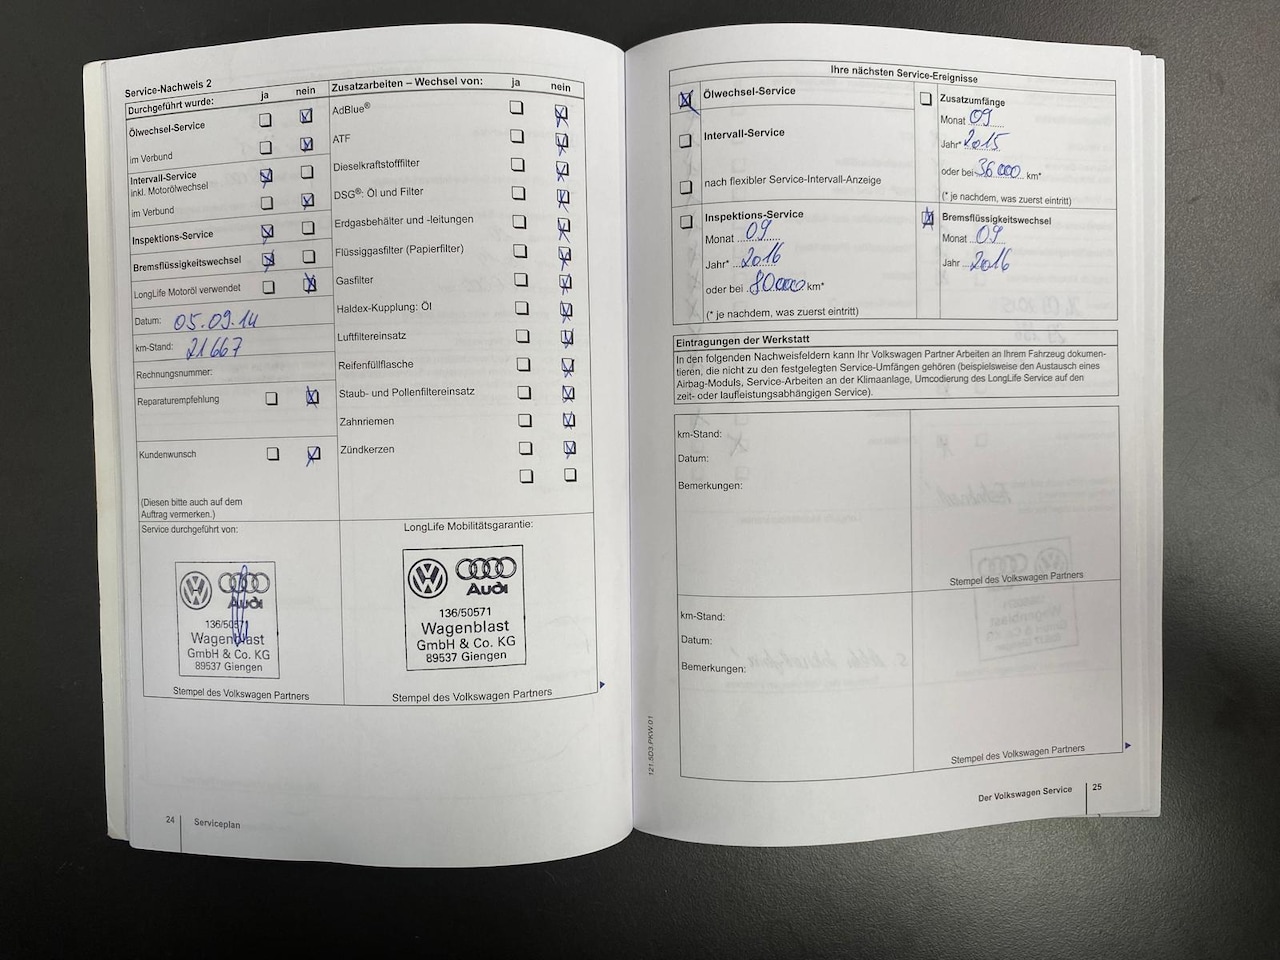 Service-Nachweis 2
Durchgeführt wurde: ja nein
Ölwechsel-Service
im Verbund
Intervall-Service
inkl. Motorölwechsel
im Verbund
Inspektions-Service
Bremsflüssigkeitswechsel
LongLife Motoröl verwendet
Datum: 05.09.14
km-Stand: 21667
Rechnungsnummer:
Reparaturempfehlung
Kundenwunsch
(Diesen bitte auch auf dem
Auftrag vermerken.)
Zusatzarbeiten – Wechsel von: ja nein
AdBlue®
ATF
Dieselkraftstofffilter
DSG®: Öl und Filter
Erdgasbehälter und -leitungen
Flüssiggasfilter (Papierfilter)
Gasfilter
Haldex-Kupplung: Öl
Luftfiltereinsatz
Reifenfüllflasche
Staub- und Pollenfiltereinsatz
Zahnriemen
Zündkerzen
Service durchgeführt von:
Audi
136/50571
Wagenblast
GmbH & Co. KG
89537 Giengen
Stempel des Volkswagen Partners
LongLife Mobilitätsgarantie:
Audi
136/50571
Wagenblast
GmbH & Co. KG
89537 Giengen
Stempel des Volkswagen Partners
24 Serviceplan
Ihre nächsten Service-Ereignisse
Ölwechsel-Service
Intervall-Service
nach flexibler Service-Intervall-Anzeige
Zusatzumfänge
Monat 09
Jahr* 2015
oder bei 36000 km*
(* je nachdem, was zuerst eintritt)
Inspektions-Service
Monat 09
Jahr* 2016
oder bei 80000 km*
(* je nachdem, was zuerst eintritt)
Bremsflüssigkeitswechsel
Monat 09
Jahr 2016
Eintragungen der Werkstatt
In den folgenden Nachweisfeldern kann Ihr Volkswagen Partner Arbeiten an Ihrem Fahrzeug dokumen-
tieren, die nicht zu den festgelegten Service-Umfängen gehören (beispielsweise den Austausch eines
Airbag-Moduls, Service-Arbeiten an der Klimaanlage, Umcodierung des LongLife Service auf den
zeit- oder laufleistungsabhängigen Service).
km-Stand:
Datum:
Bemerkungen:
Stempel des Volkswagen Partners
km-Stand:
Datum:
Bemerkungen:
Stempel des Volkswagen Partners
121.5D3.PKW.01
Der Volkswagen Service 25